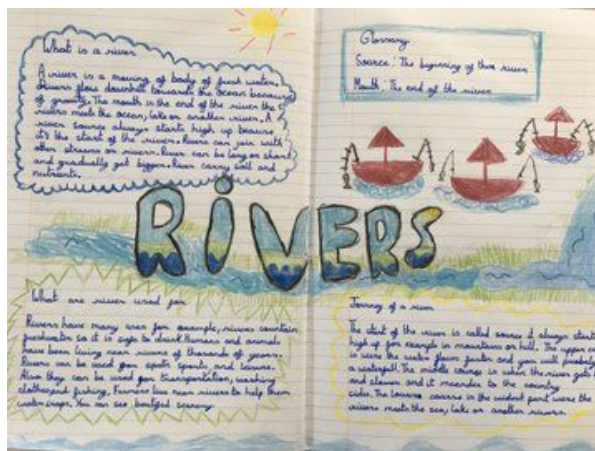 What is a river
A river is a moving of body of fresh water.
Rivers flow downhill towards the ocean because
of gravity. The mouth is the end of the river the
rivers meets the ocean, lake or another river. A
river source always starts high up because
it's the start of the river. Rivers can join with
other streams or rivers. River can be long or short
and gradually get bigger. River carry soil and
nutrients.
Glossary
Source: The beginning of the river
Mouth: The end of the river
RIVERS
What are river used for
Rivers have many uses for example, rivers countain
freshwater so it is safe to drink. Humans and animals
have been living near rivers of thousands of years.
Rivers can be used for sports and leisure.
Also they can be used for transportation, washing
clothes and fishing. Farmers live near rivers to help them
water crops. You can see beatiful scenery
Journey of a river
The start of the river is called source it always starts
high up for example in mountains or hill. The upper
is were the water flows faster and you will probably
a waterfall. The middle course is when the river gets
and slower and it meanders to the country
side. The course is the widest part were the
rivers meets the sea, lake or another rivers.